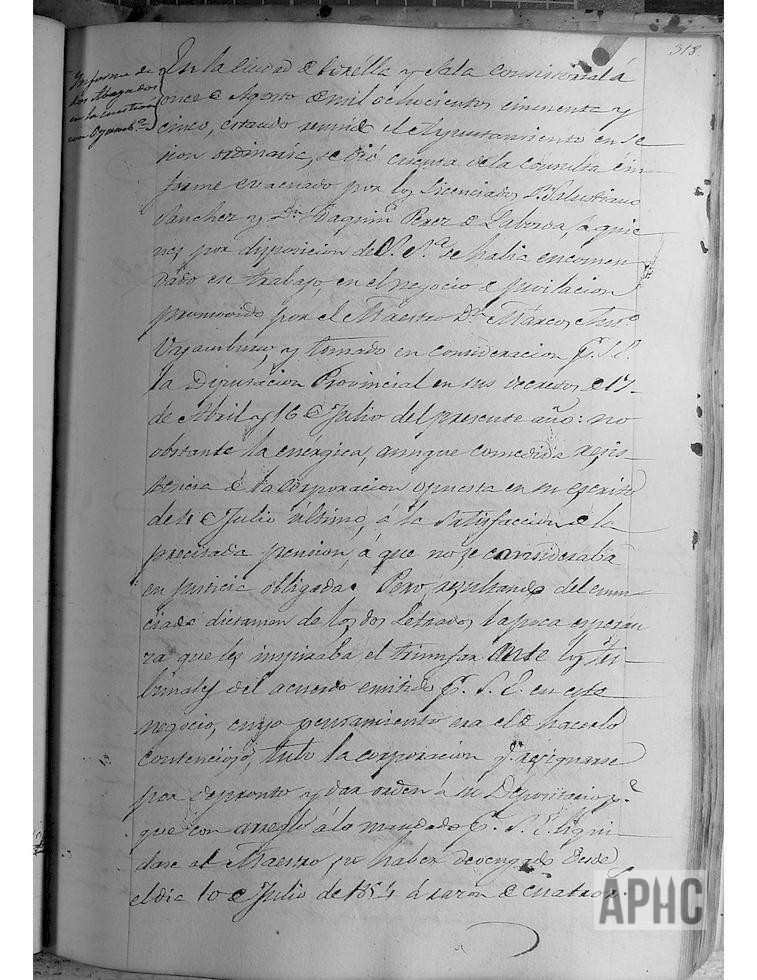 318.
Informe de
dos Abogados
en la cuestion
con Oyamb.º
En la Ciudad de Corella y Sala Consistorial á
once de Agosto de mil ochocientos cincuenta y
cinco, estando reunido el Ayuntamiento en se
sion ordinaria, se dió cuenta de la consulta é in-
forme evacuado por los Licenciados D. Salustiano
Sanchez y D.n Joaquin Perez de Laborda, a quie
nes por disposicion de S. S.ª se habia encomen
dado en trabajo, en el negocio de jubilacion
promovido por el Maestro D.n Marcos Ant.º
Uyamburu, y tomado en consideracion p.r S. E.
la Diputacion Provincial en sus decretos de 17
de Abril y 16 de Julio del presente año: no
obstante la enérgica, aunque comedida resis-
tencia de la corporacion opuesta en su escrito
de 11 de Julio último, á la satisfaccion de la
precitada pension, á que no se consideraba
en justicia obligada. Pero resultando del enun-
ciado dictamen de los dos Letrados, la poca esperan
za que les inspiraba el triunfar ante los tri-
bunales del acuerdo emitido p.r S. E. en este
negocio, cuyo pensamiento era el de hacerlo
contencioso, tubo la corporacion q.e resignarse
por de pronto y dar orden á su Depositario p.ª
que con arreglo á lo mandado p.r S. E. liqui-
dase al Maestro su haber devengado desde
el dia 10 de Julio de 1854 á razon de cuatro
APHC